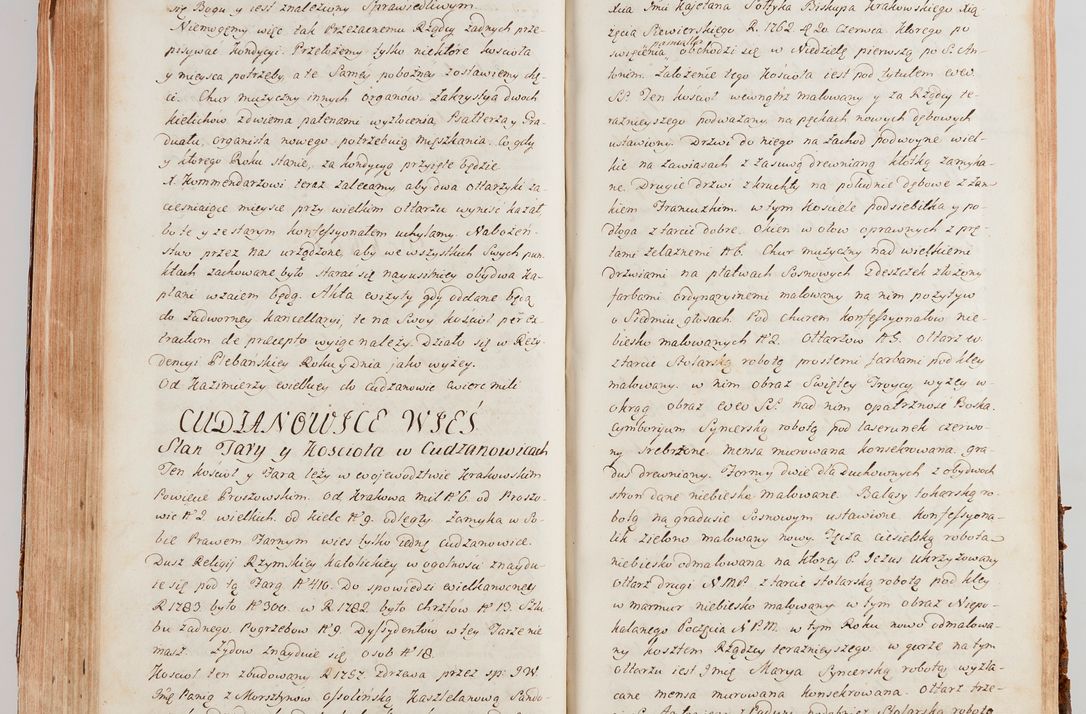 się Bogu y iest znaleziony Sprawiedliwym
Niemogąmy więc tak Przezacnemu Rządcy żadnych prze-
pisywać Kondycyi. Przełożemy tylko niektóre kościoła
y mieysca potrzeby, a te Samey pobożney zostawiemy chę-
ci. Chur muzyczny innych organow. Zakrystya dwoch
kielichow z dwiema patenami wyzłocenia Psałterza y Gra-
duału, organista nowego potrzebuią mieszkania. Co gdy
y ktorego Roku stanie, za kondycyą przyięte będzie
X. Kommendarzowi teraz zalecamy, aby dwa ołtarzyki za-
cieśniaiące mieysce przy wielkim ołtarzu wynieść kazał,
bo te y ze starym konfessyonałem uchylamy. Nabożeń-
stwo przez nas urządzone, aby we wszystkich Swych pun-
ktach zachowane było starać się nayusilniey obydwa Ka-
płani wzaiem będą. Akta wizyty gdy oddane będą
do Zadworney Kancellaryi, te na Swoy kościoł per Ex-
tractum de præcepto wyiąć należy. Działo się w Rezy-
dencyi Plebańskiey Roku y Dnia jako wyżey.
Od Kazimierzy wielkiey do Cudzanowic ćwierć mili
CUDZANOWICE WIEŚ
Stan Fary y Kościoła w Cudzanowicach
Ten kościoł y Fara leży w Woiewodztwie Krakowskim
Powiecie Proszowskim. Od Krakowa mil N° 6. od Proszo-
wic N° 2. wielkich. od Kielc N° 9. odległy. Zamyka w So-
bie Prawem Farnym wieś tylko iednę Cudzanowice.
Dusz Religij Rzymskiey katolickiey w ogolności znaydu-
ie się pod tą Farą N° 416. Do spowiedzi wielkanocney
R 1783 było N° 300. w R 1782 było chrztow N° 13. Szlu-
bu żadnego. Pogrzebow N° 9. Dyssydentow w tey Farze nie
masz. Żydow znayduie się osob N° 18.
Kościoł ten zbudowany R 1757. zdrzewa przez sp: J.W.
Imę Panią z Morsztynow Ossolińską Kasztelanową Sando-
Xcia Jmci Kaietana Sołtyka Biskupa Krakowskiego Xią-
zęcia Siewierskiego R. 1762. D 20 Czerwca. ktorego po
święcenia pamiątka obchodzi się w Niedzielę pierwszą po S. An-
tonim. Założenie tego Kościoła iest pod tytułem WW.
SS: Ten kościoł wewnątrz malowany y za Rządcy te-
raznieyszego podważany, na pęckach nowych dębowych
ustawiony. Drzwi do niego na zachod podwoyne wiel-
kie na zawiasach z zasuwą drewnianą klotką zamyka-
ne. Drugie drzwi z kruchty na południe dębowe z zam-
kiem Francuzkim. w tym Kościele podsiebitka y po-
dłoga z tarcic dobre. Okien w ołow oprawnych z prę-
tami żelaznemi N° 6. Chur muzyczny nad wielkiemi
drzwiami na płatwach Sosnowych Zdeszczek złożony
farbami ordynaryinemi malowany na nim pozytyw
o Siedmiu głosach. Pod churem konfessyonałow nie-
biesko malowanych N° 2. Ołtarzow N° 5. Ołtarz w.
z tarcic Stolarską robotą prostemi farbami pod kley
malowany. w nim obraz Swiętey Troycy, wyżey w
okrąg obraz WW SS: nad nim opatrzność Boska.
Cymboryum Snycerską robotą pod laserunek czerwo-
ny srebrzone. mensa murowana konsekrowana. gra-
dus drewniany. Formy dwie dla duchownych z obydwoch
stron dane niebiesko malowane. Balasy tokarską ro-
botą na gradusie Sosnowym ustawione. konfessyona-
lik zielono malowany nowy. Tęcza ciesielską robotą
niebiesko odmalowana na ktorey P. Jezus ukrzyżowany
Ołtarz drugi N.M.P. z tarcic stolarską robotą pod kley
w marmur niebiesko malowany w tym obraz Niepo-
kalanego Poczęcia N.P.M. w tym Roku nowo odmalowa-
ny kosztem Rządcy teraznieyszego. w gorze na tym
ołtarzu iest Imię Marya Snycerską robotą wyzła-
cane mensa murowana konsekrowana. Ołtarz trze-